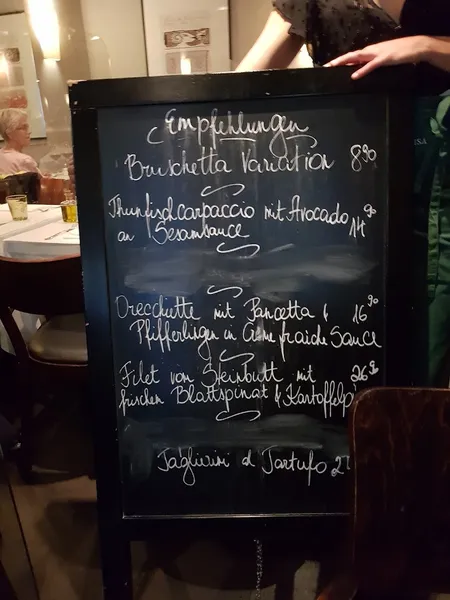 Empfehlungen
Bruschetta Variation 8,90
Thunfischcarpaccio mit Avocado
an Sesamsauce 14,90
Orecchiette mit Pancetta & 16,90
Pfifferlingen in Creme fraiche Sauce
Filet vom Steinbutt mit 26,90
frischen Blattspinat & Kartoffelp
Tagliolini al Tartufo 2